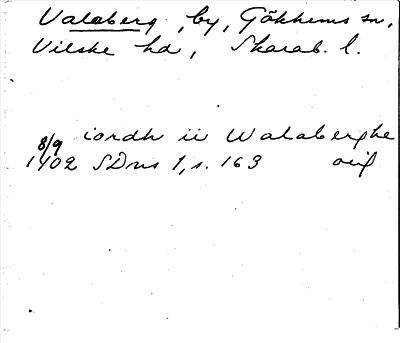 Valaberg, by, Gökhems sn,
Vilske hd, Skarab. l.
8/9 iordh ii Walaberghe
1402 SDns 1, s. 163 orig